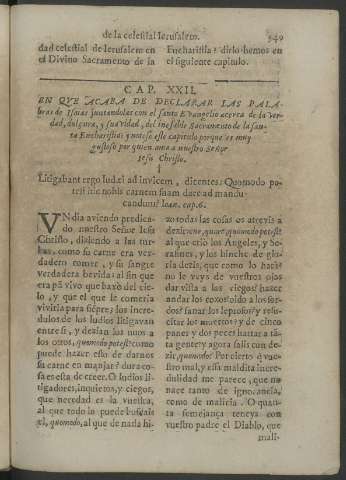 de la celestial Ierusalem. 549
dad celestial de Ierusalem en
el Divino Sacramento de la
Eucharistia? dirlo hemos en
el siguiente capitulo.
CAP. XXII.
EN QVE ACABA DE DECLARAR LAS PALA-
bras de Isaias juntandolas con el santo Evangelio acerca de la ver-
dad, dulçura, y suavidad, del inefable Sacramento de la san-
ta Eucharistia: y notese este capitulo porque es muy
gustoso por quien ama a nuestro Señor
Iesu Christo.
Litigabant ergo Iudæi ad invicem, dicentes: Quomodo po-
test hic nobis carnem suam dare ad mandu-
candum? Ioan. cap. 6.
VN dia aviendo predica-
do nuestro Señor Iesu
Christo, diziendo a las tur-
bas, como su carne era ver-
dadera comer, y su sangre
verdadera bevida: al fin que
era pã vivo que baxò del cie-
lo, y que el que le comeria
viviria para siẽpre; los incre-
dulos de los Iudios litigavan
entre si, y dezian los unos a
los otros, quomodo potest? como
puede hazer esso de darnos
su carne en manjar? dura co-
sa es esta de creer. O Iudios li-
tigadores, inquietos, y ciegos,
que necedad es la vuestra,
al que todo lo puede buscais
el, quomodo, al que de nada hi-
zo todas las cosas os atreveis a
dezir, como, quomodo potest?
al que criò los Angeles, y Se-
rafines, y los hinche de glo-
ria dezis, que como lo harà?
no le veys de vuestros ojos
dar vista a los ciegos? hazer
andar los coxos? oìdo a los sor-
dos? sanar los leprosos? y resu-
citar los muertos? y de cinco
panes y dos peces hartar a tã-
ta gente? y agora salis con de-
zir, quomodo? Por cierto q̃ vues-
tro mal, y essa maldita incre-
dulidad me parece, que no
nace tanto de ignorancia,
como de malicia. O quan-
ta semejança teneys con
vuestro padre el Diablo, que
mali-